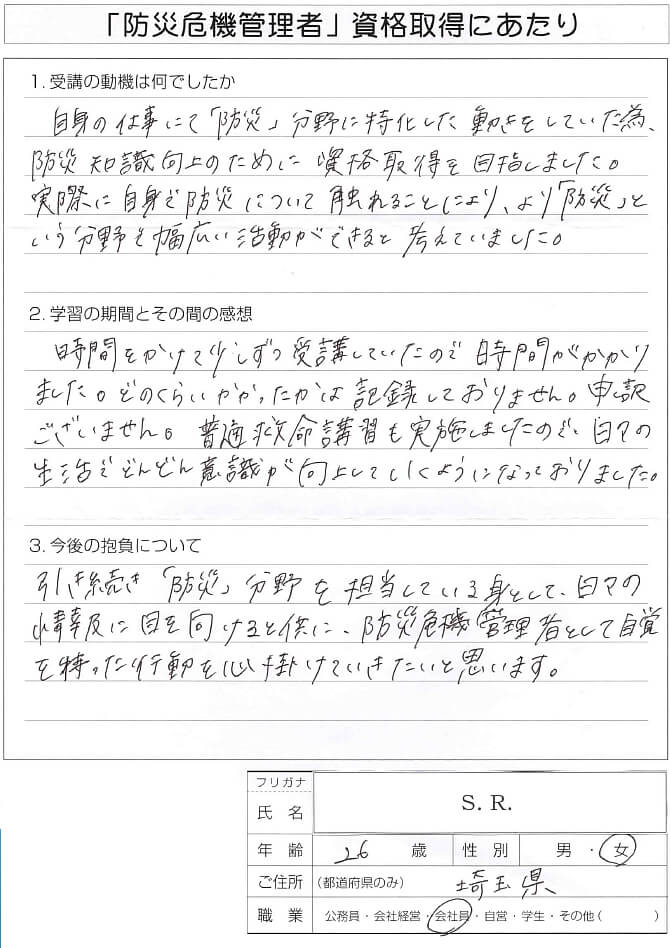 「防災危機管理者」資格取得にあたり
1. 受講の動機は何でしたか
自身の仕事にて「防災」分野に特化した動きをしていた為、
防災知識向上のために資格取得を目指しました。
実際に自身で防災について触れることにより、より「防災」と
いう分野を幅広い活動ができると考えていました。
2. 学習の期間とその間の感想
時間をかけて少しずつ受講していたので時間がかかり
ました。どのくらいかかったかは記録しておりません。申訳
ございません。普通救命講習も実施しましたので、日々の
生活でどんどん意識が向上していくようになっておりました。
3. 今後の抱負について
引き続き「防災」分野を担当している身として、日々の
情報に目を向けると供に、防災危機管理者として自覚
を持った行動を心掛けていきたいと思います。
フリガナ
氏 名 S. R.
年 齢 26 歳 性 別 男 ・ 女
ご住所 (都道府県のみ) 埼玉県
職 業 公務員・会社経営・会社員・自営・学生・その他( )